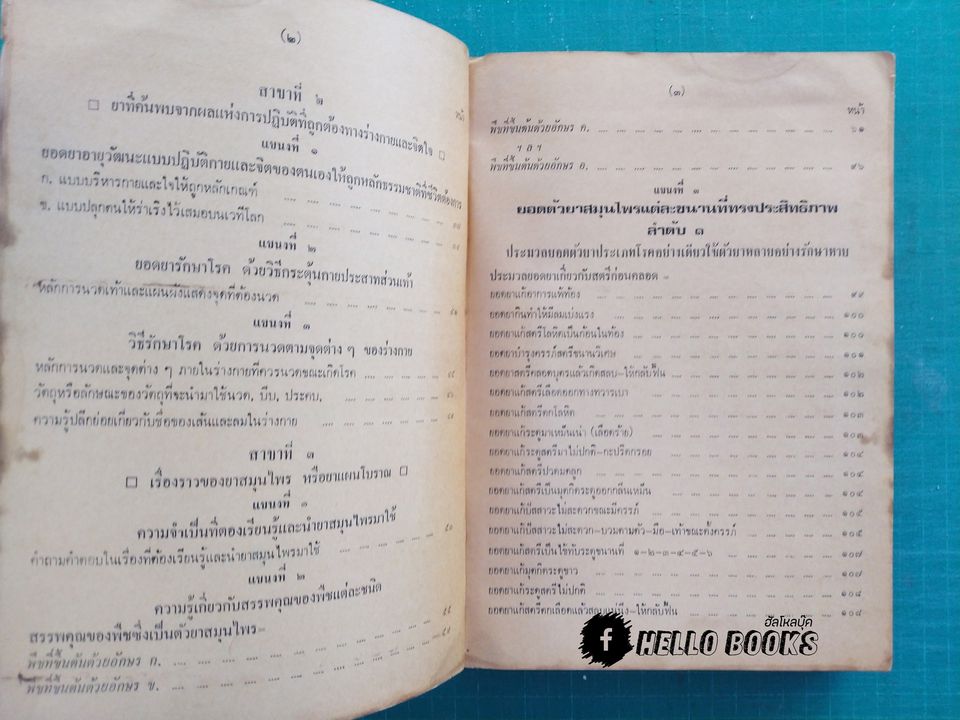 (๒)
สาขาที่ ๒
หน้า
□ ยาที่ค้นพบจากผลแห่งการปฏิบัติที่ถูกต้องทางร่างกายและจิตใจ □
แขนงที่ ๑
ยอดยาอายุวัฒนะแบบปฏิบัติกายและจิตของตนเองให้ถูกหลักธรรมชาติที่ชีวิตต้องการ
ก. แบบบริหารกายและใจให้ถูกหลักเกณฑ์
ข. แบบปลุกตนให้ร่าเริงไว้เสมอบนเวทีโลก
แขนงที่ ๒
ยอดยารักษาโรค ด้วยวิธีกระตุ้นกายประสาทส่วนเท้า
หลักการนวดเท้าและแผนผังแสดงจุดที่ต้องนวด
แขนงที่ ๓
วิธีรักษาโรค ด้วยการนวดตามจุดต่าง ๆ ของร่างกาย
หลักการนวดและจุดต่าง ๆ ภายในร่างกายที่ควรนวดขณะเกิดโรค
วัตถุหรือลักษณะของวัตถุที่จะนำมาใช้นวด, บีบ, ประคบ,
ความรู้ปลีกย่อยเกี่ยวกับชื่อของเส้นและลมในร่างกาย
สาขาที่ ๓
□ เรื่องราวของยาสมุนไพร หรือยาแผนโบราณ □
แขนงที่ ๑
ความจำเป็นที่ต้องเรียนรู้และนำยาสมุนไพรมาใช้
คำถามคำตอบในเรื่องที่ต้องเรียนรู้และนำยาสมุนไพรมาใช้
แขนงที่ ๒
ความรู้เกี่ยวกับสรรพคุณของพืชแต่ละชนิด
สรรพคุณของพืชซึ่งเป็นตัวยาสมุนไพร-
พืชที่ขึ้นต้นด้วยอักษร ก.
พืชที่ขึ้นต้นด้วยอักษร ข.
(๓)
หน้า
พืชที่ขึ้นต้นด้วยอักษร ค. ๖๑
ฯ ล ฯ
พืชที่ขึ้นต้นด้วยอักษร อ. ๙๖
แขนงที่ ๓
ยอดตัวยาสมุนไพรแต่ละขนานที่ทรงประสิทธิภาพ
ลำดับ ๑
ประมวลยอดตัวยาประเภทโรคอย่างเดียวใช้ตัวยาหลายอย่างรักษาหาย
ประมวลยอดยาเกี่ยวกับสตรีก่อนคลอด -
ยอดยาแก้อาการแพ้ท้อง ๙๙
ยอดยากินทำให้มีลมเบ่งแรง ๑๐๐
ยอดยาแก้สตรีโลหิตเป็นก้อนในท้อง ๑๐๐
ยอดยาบำรุงครรภ์สตรีขนานวิเศษ ๑๐๑
ยอดยาสตรีคลอดบุตรแล้วเกิดสลบ-ให้กลับฟื้น ๑๐๒
ยอดยาแก้สตรีเลือดออกทางทวารเบา ๑๐๒
ยอดยาแก้สตรีตกโลหิต ๑๐๓
ยอดยาแก้ระดูมาเหม็นเน่า (เลือดร้าย) ๑๐๓
ยอดยาแก้ระดูสตรีมาไม่ปกติ-กะปริดกรอย ๑๐๔
ยอดยาแก้สตรีปวดมดลูก ๑๐๔
ยอดยาแก้สตรีเป็นมุตกิดระดูออกกลิ่นเหม็น ๑๐๔
ยอดยาแก้ปัสสาวะไม่สะดวกขณะมีครรภ์ ๑๐๕
ยอดยาแก้ปัสสาวะไม่สะดวก-บวมตามตัว-มือ-เท้าขณะตั้งครรภ์ ๑๐๕
ยอดยาแก้สตรีเป็นไข้ทับระดูขนานที่ ๑-๒-๓-๔-๕-๖ ๑๐๗
ยอดยาแก้มุตกิดระดูขาว ๑๐๗
ยอดยาแก้ระดูสตรีไม่ปกติ ๑๐๘
ยอดยาแก้สตรีตกเลือดแล้วสลบแน่นิ่ง-ให้กลับฟื้น ๑๐๘
ฮัลโหลบุ๊ค
f HELLO BOOKS